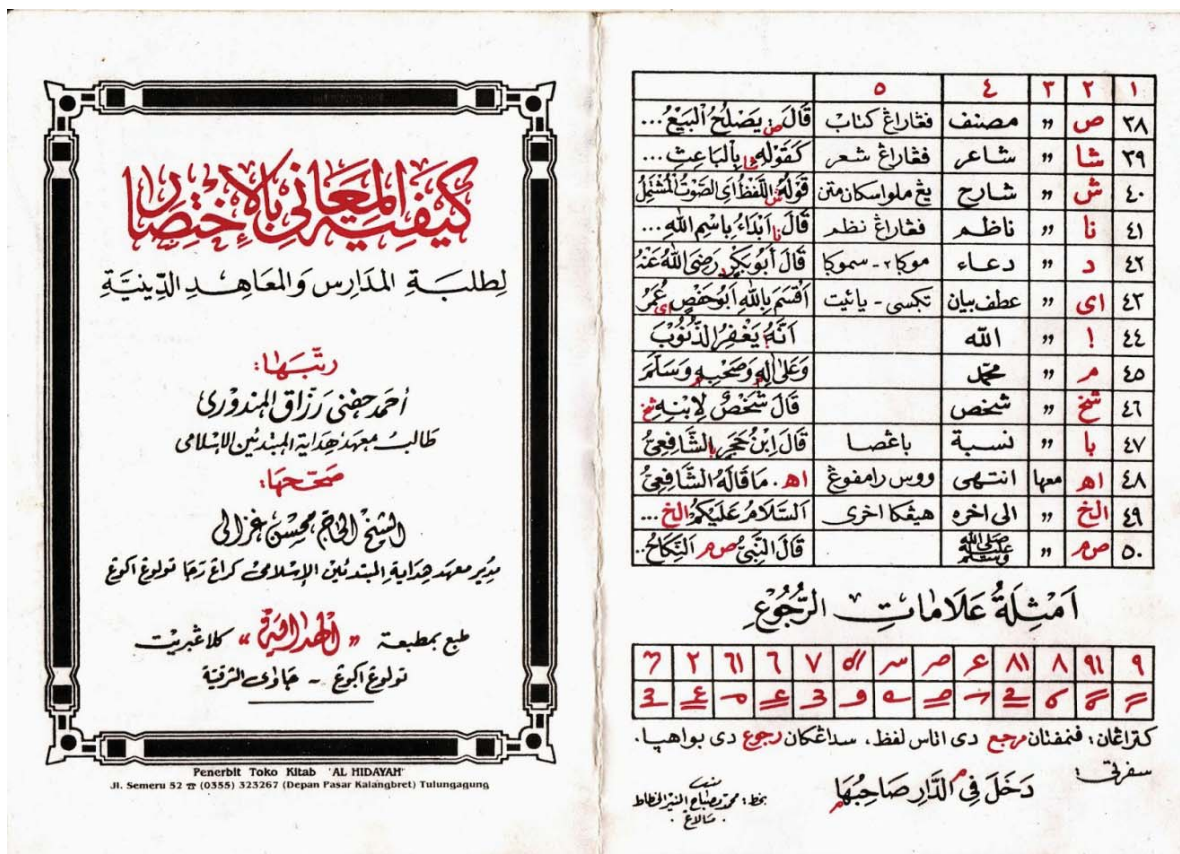 كيفية المعاني بالإختصار
لطلبة المدارس والمعاهد الدينية
رتبها:
أحمد حفنى رزاق المندورى
طالب معهد هداية المبتدئين الاسلامى
صححها:
الشيخ الحاج محسن غزالى
مدير معهد هداية المبتدئين الإسلامى كراغ رجا تولوغ اكوغ
طبع بمطبعة "الهداية" كلاغبريت
تولوغ اكوغ - جاوى الشرقية
Penerbit Toko Kitab 'AL HIDAYAH'
Jl. Semeru 52 ☎ (0355) 323267 (Depan Pasar Kalangbret) Tulungagung
١ ٢ ٣ ٤ ٥
٣٨ ص " مصنف فڠاراڠ كتاب قَالَ ص يَصْلُحُ الْبَيْعُ ...
٣٩ شا " شاعر فڠاراڠ شعر كَقَوْلِهِ شا بِالْبَاعِثِ ...
٤٠ ش " شارح يڠ ملواسكان متن قَوْلُهُ ش اللَّفْظُ اى الصَّوْتُ الْمُشْتَمِلُ
٤١ نا " ناظم فڠاراڠ نظم قَالَ نا اَبْدَاءُ بِاسْمِ اللهِ ...
٤٢ د " دعاء موكا٢ - سموكا قَالَ أَبُو بَكْرٍ د رَضِىَ اللهُ عَنْهُ
٤٣ اى " عطف بيان تكسى - يائيت اَقْسَمَ بِاللهِ اَبُو حَفْصٍ اى عُمَرُ
٤٤ ! " الله اَنَّهُ ! يَغْفِرُ الذُّنُوْبَ
٤٥ م " محمد وَعَلَى الِهِ م وَصَحْبِهِ م وَسَلَّمَ
٤٦ شخ " شخص قَالَ شَخْصٌ لِابْنِهِ شخ
٤٧ با " نسبة باڠصا قَالَ ابْنُ حَجَرٍ با الشَّافِعِىُّ
٤٨ اه معها انتهى ووس رامفوڠ اه . مَا قَالَهُ الشَّافِعِىُّ
٤٩ الخ " الى اخره هيڠكا اخرى اَلسَّلَامُ عَلَيْكُمْ الخ ...
٥٠ ص م " صلى الله عليه وسلم قَالَ النَّبِىُّ ص م اَلنِّكَاحُ ..
اَمْثِلَةُ عَلَامَاتِ الرُّجُوْعِ
كتراڠان: فنمفتان مرجع دى اتاس لفظ، سداڠكان رجوع دى بواهيا.
سفرتى: دَخَلَ فِى الدَّارِ م صَاحِبُهَا م
بخط: محمد مصباح المنير الخطاط